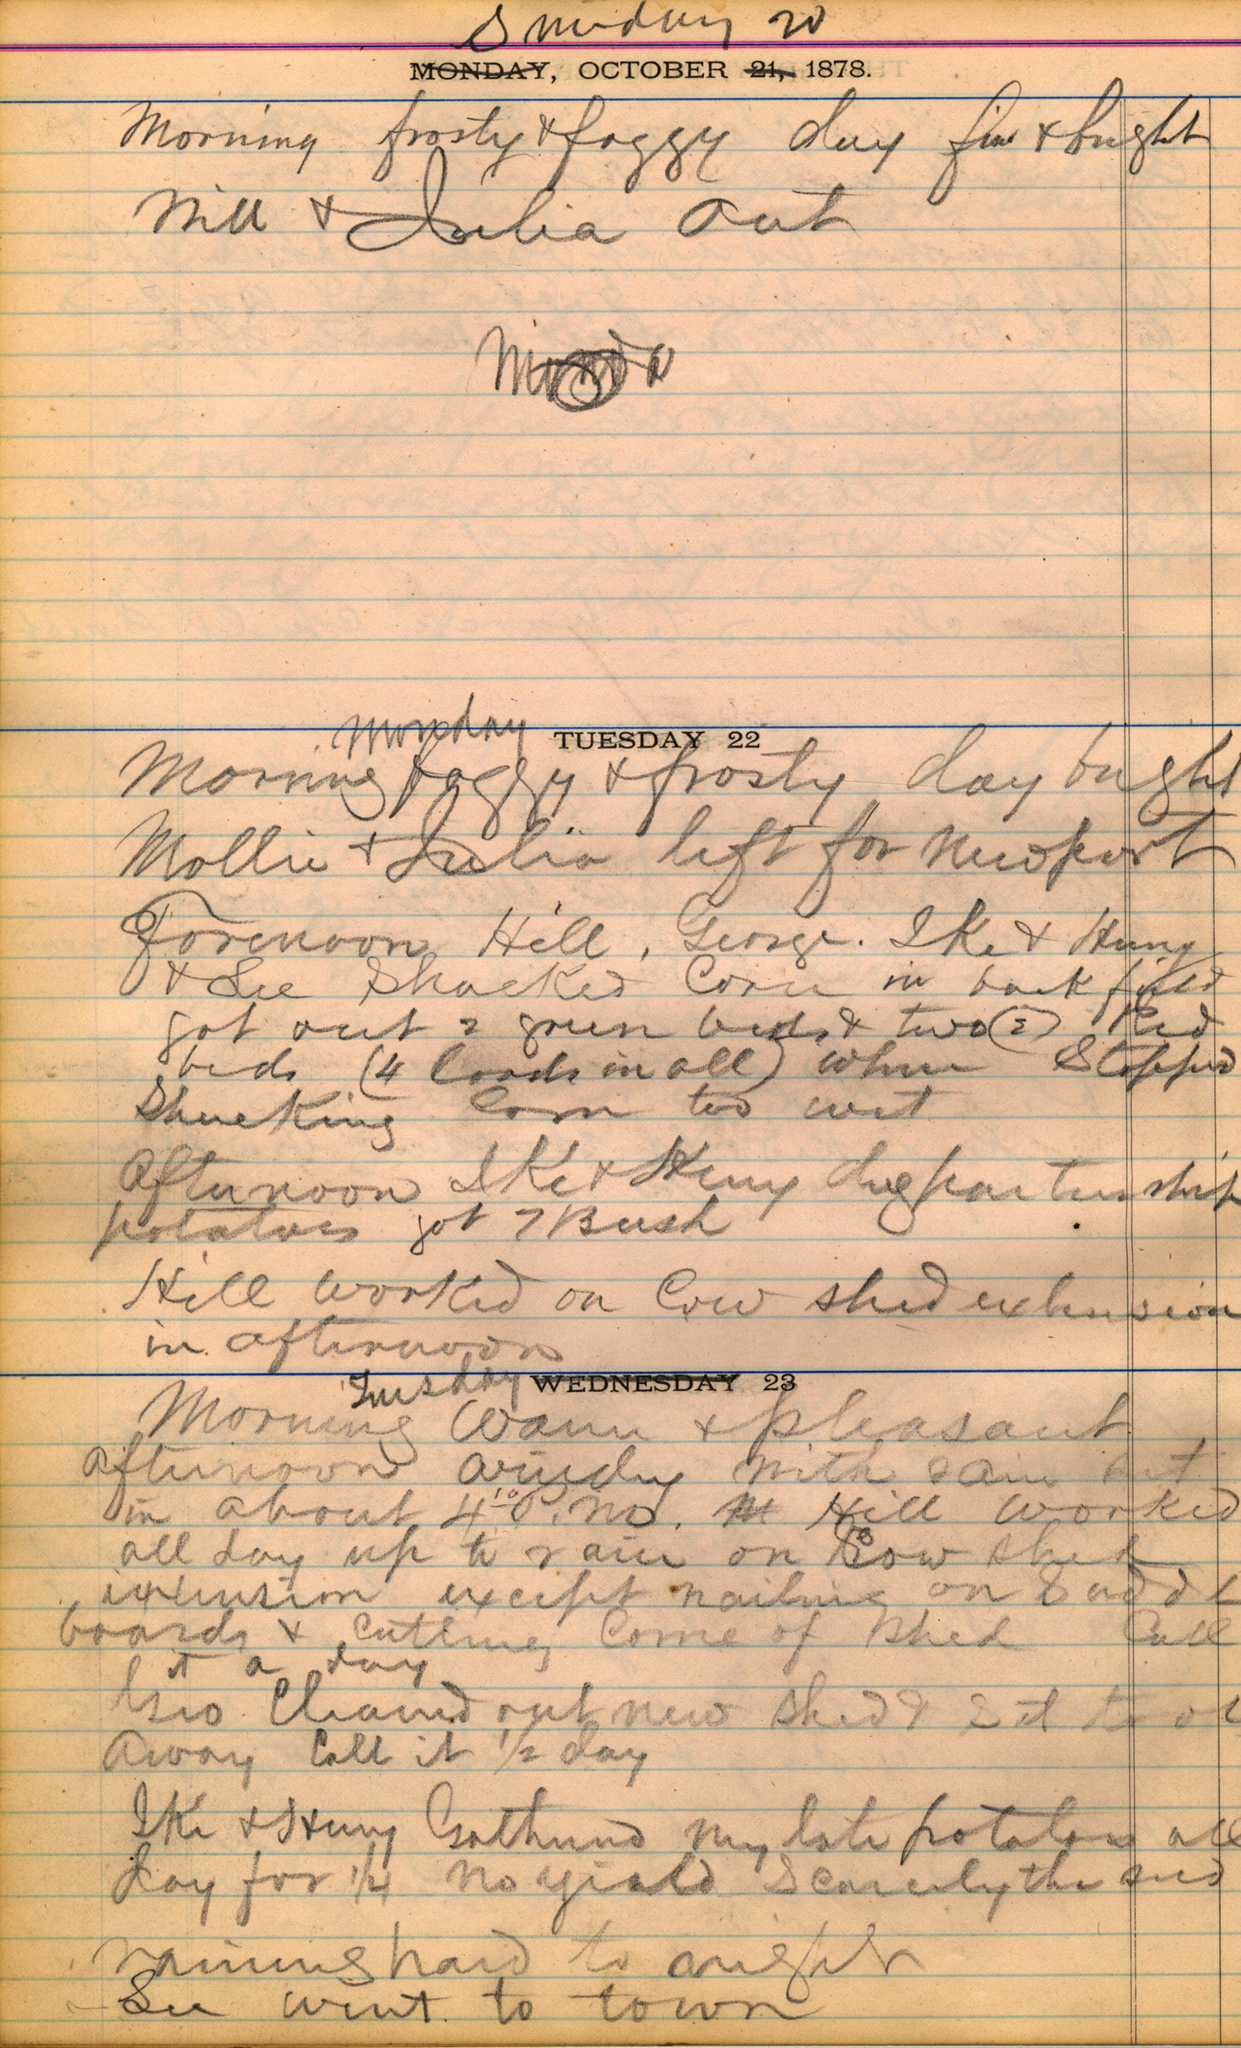 Sunday 20
MONDAY, OCTOBER 21, 1878.
Morning frosty & foggy day fine & bright
Will & Julia out
Monda
Monday TUESDAY 22
Morning foggy & frosty day bright
Mollie & Julia left for Newport
Forenoon Hill, George. Ike & Henry
& Lee Shucked Corn in back field
got out 2 green beds & two (2) Red
beds (4 loads in all) when Stopped
Shucking Corn too wet
Afternoon Ike & Henry dug partnership
potatoes got 7 Bush
Hill worked on Cow shed extension
in afternoon
Tuesday WEDNESDAY 23
Morning Warm & pleasant
afternoon windy with rain set
in about 4 P.M. Hill worked
all day up to rain on Cow shed
extension except nailing on
boards & Cutting Corner of Shed Call
it a day
Geo. Cleaned out new shed &
away Call it 1/2 day
Ike & Henry Gathered my late potatoes all
day for 1/4 no yield Scarcely the seed
raining hard to night
Lee went to town